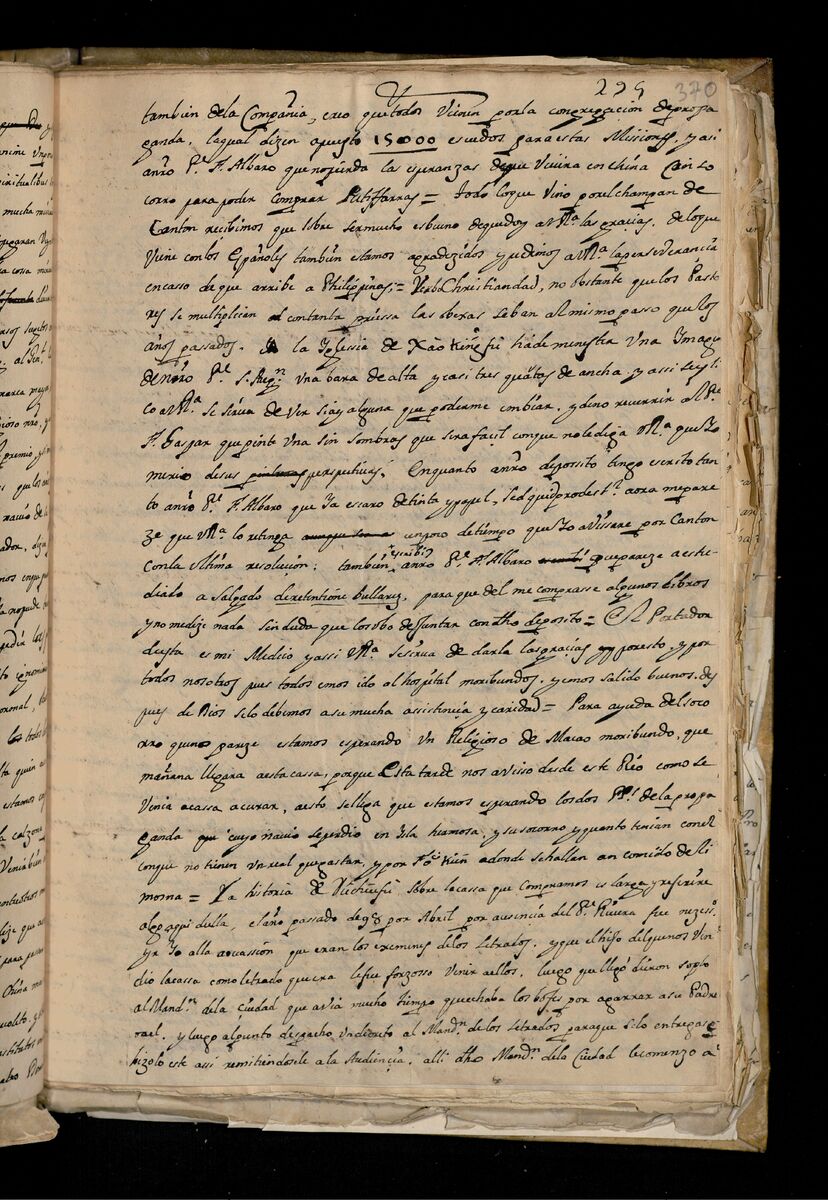 295 370
tambien dela Compañia, creo que todos Vienen por la congregacion de propa
ganda, laqual dizen a puesto 15000 escudos para estas Missiones, y asi
a nrõ Pe. F. Albaro que no pierda las esperanzas de que Vivira en china Con so
corro para poder Comprar Petiffarras = Todo loque Vino por el champan de
Canton recibimos que sobre ser mucho es bueno de que doy a VRª. las gracias. de loque
Viene con los Españoles tambien estamos agradezidos y pedimos a VRª. la perseverancia
en caso de que arribe a Philippinas; = Verbo Christiandad, no obstante que los Pasto
res se multiplican con tanta priessa las obejas se ban al mismo passo que los
años passados. la Iglessia de Xao Kiñg fù ha de menester Una Imagen
de nrõ Pe. S. Augn. Una bara de alta y casi tres quartos de ancha, y assi supli
co a VRª. se sirva de Ver si ay alguna que poderme embiar, y de no recurrir al Pe.
F. Gaspar que pinte Una sin sombras que sera façil con que no le diga VRª. que Yo
murio de sus pinturas perspectivas. En quanto a nrõ deposito tengo escrito tan
to a nrõ Pe. F. Albaro que ya es caro de tinta y papel, sed quid prodest? aora me pare
ze que VRª. lo retenga aunque sea a un poco de tiempo que Yo avissare por Canton
con la ultima resolucion: tambien escribi a nrõ Pe. F. Albaro que pareze a estu
diado a Salgado de retentione bullarum, para que del me comprasse algunos libros
y no me dize nada sin duda que los ubo de Juntar con dho deposito = El Portador
de esta es mi Medico y assi VRª. se sirva de darle las gracias por esto, y por
todos nosotros pues todos emos ido al hospital moribundos, y emos salido buenos, des
pues de Dios se lo debimos a su mucha assistencia y caridad = Para ayuda del soco
rro que nos pareze estamos esperando Un Religioso de Macao moribundo, que
mañana llegara a esta cassa, porque Esta tarde nos aviso desde este Rio como se
Venia a cassa a curar, a esto se llega que estamos esperando los dos Ps. de la propa
ganda que cuyo navio se perdio en Isla hermosa, y su socorro y quanto tenian con el
con que no tienen Un real que gastar, y por Fò kieñ a donde se hallan an comido de li
mosna = La historia de sobre la cassa que Compramos es larga y referire
algo aqui della, el año passado de 98 por Abril por ausencia del Pe. Rivera fue nezesso.
yr Yo alla a ocassion que eran los exsamenes de los Letrados, y que el hijo del que nos Ven
dio la cassa como letrado que era le fue forzosso Venir a ellos, luego que llegò dieron soplo
al Mandn. de la Ciudad que avia mucho tiempo que echaba los bofes por agarrar a su Padre
y luego al punto despacho Un decreto al Mandn. de los letrados para que se lo entregase
hizolo este assi remitiendosele a la Audiencia, alli dho Mandn. de la Ciudad le comenzo a